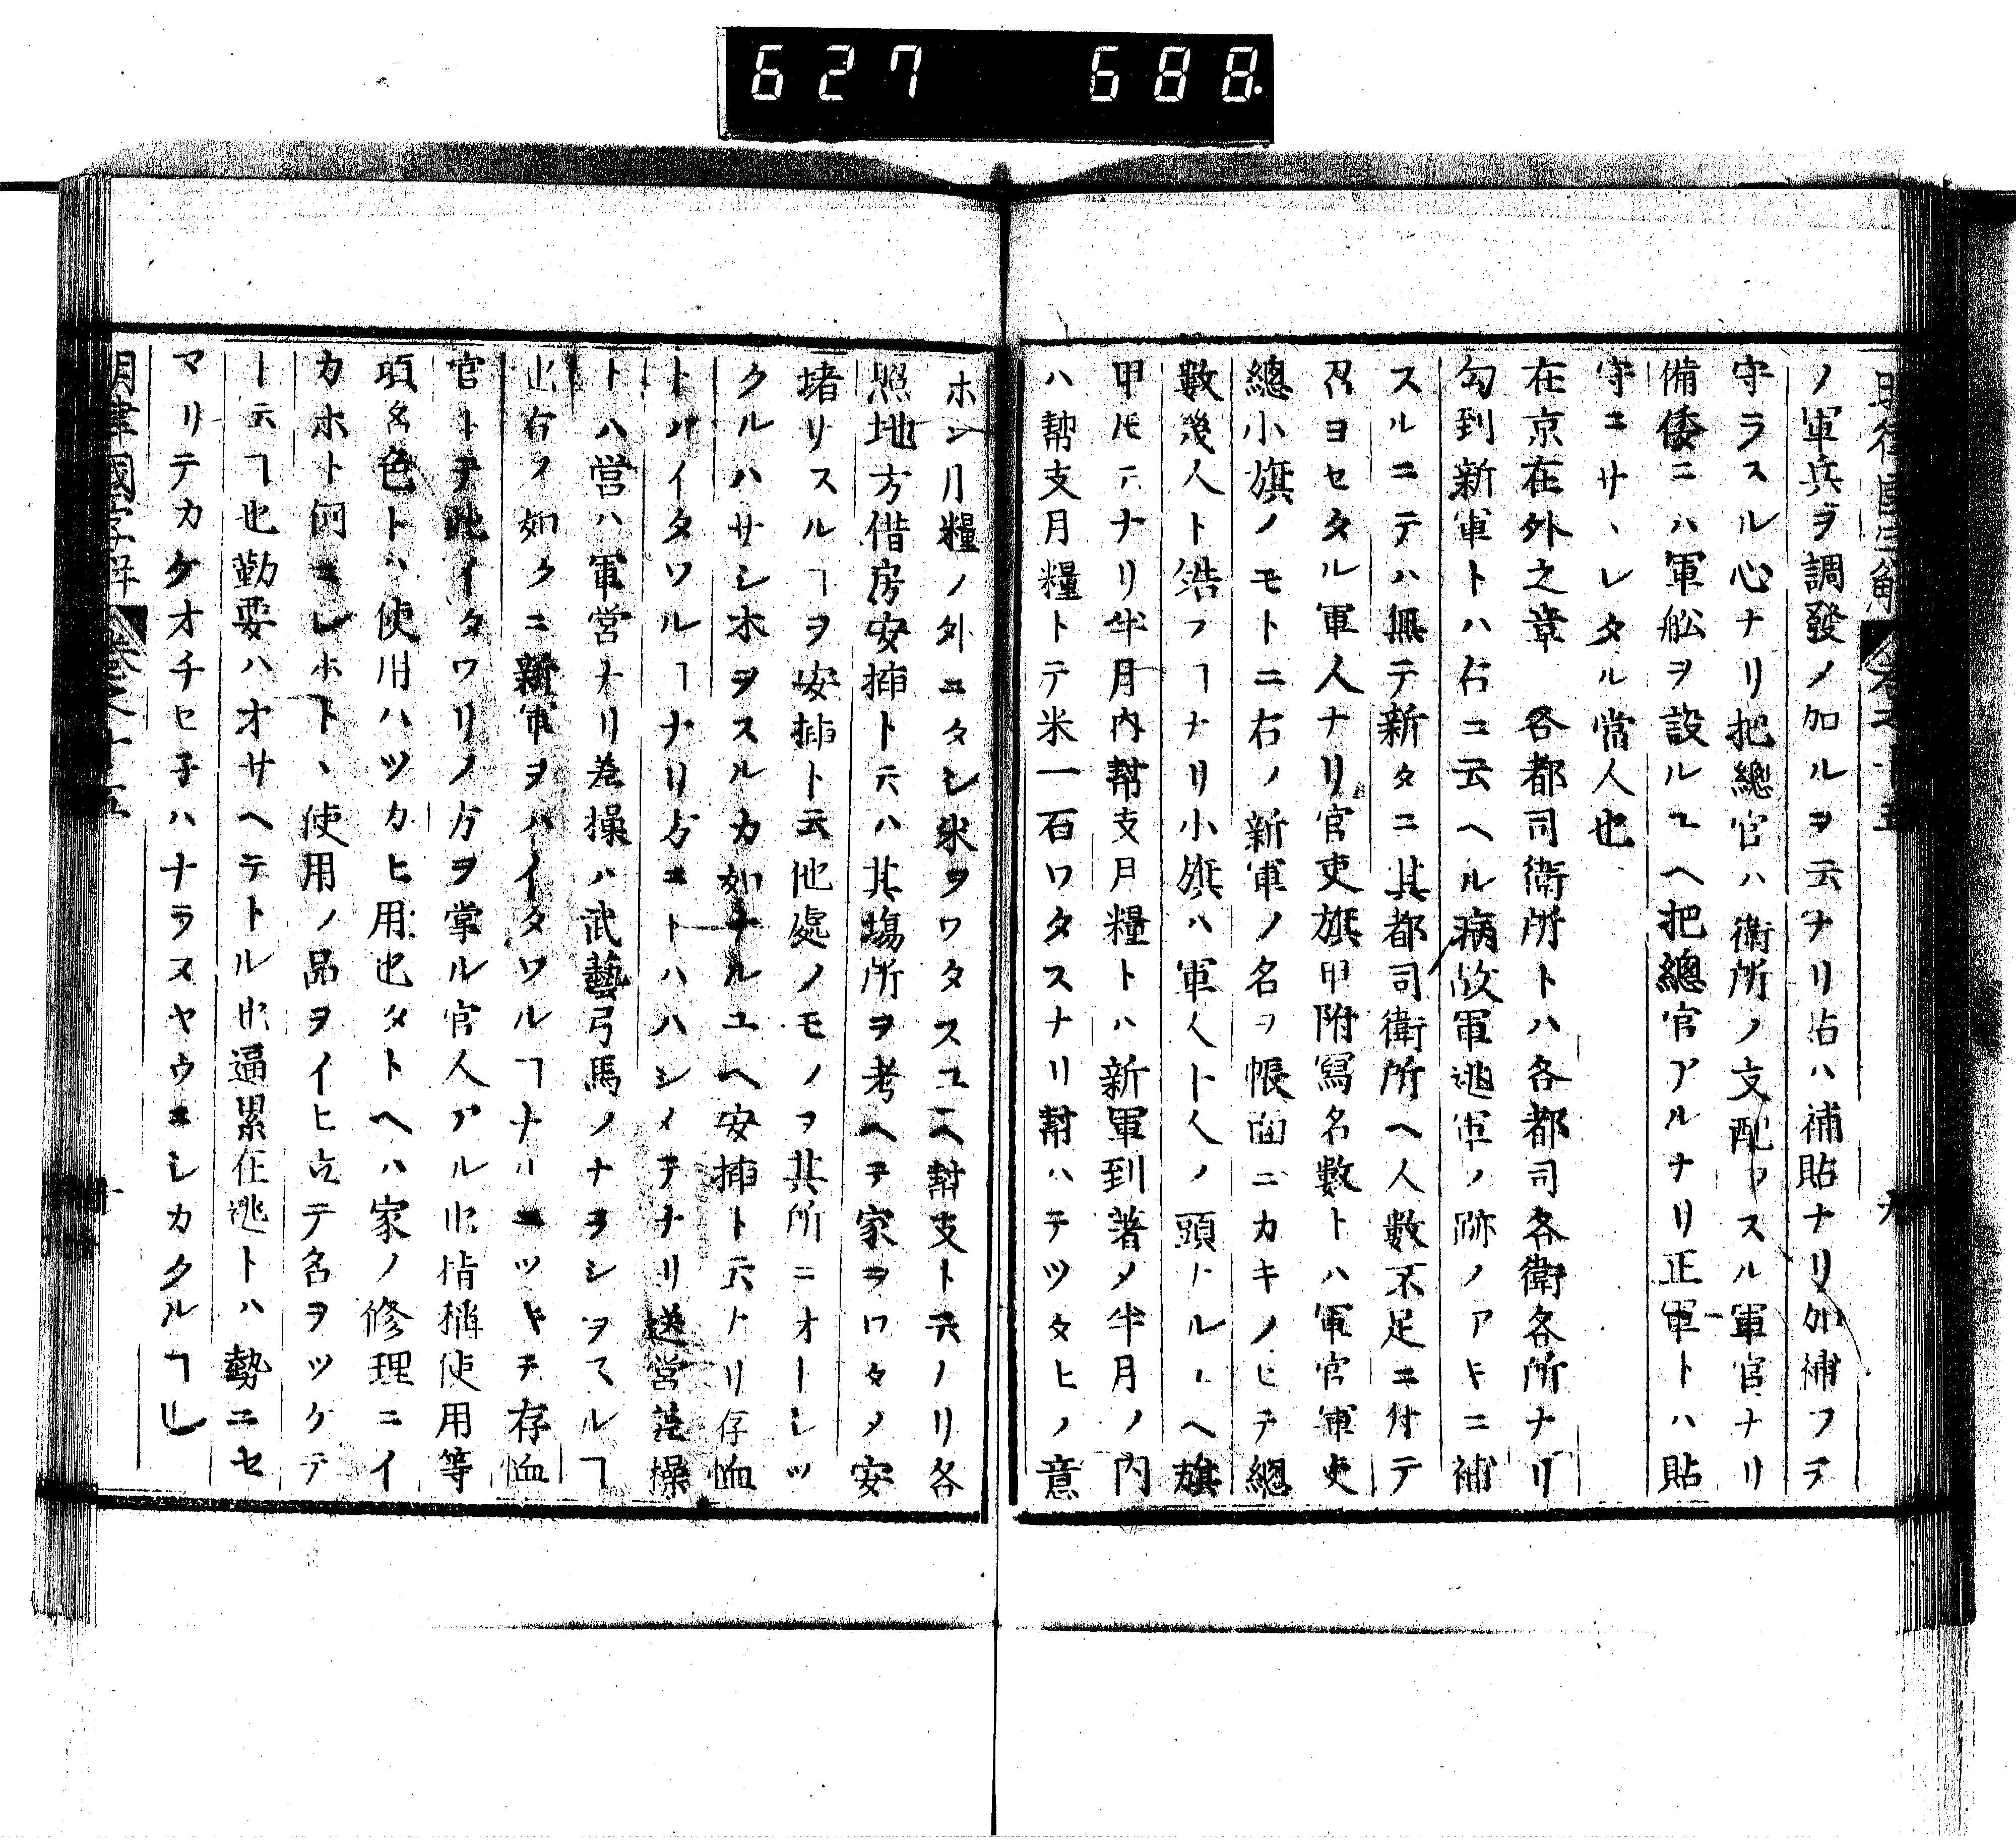 627 688
明律國字解 卷之十五 九
ノ軍兵ヲ調發ノ加ルヲ云ナリ貼ハ補貼ナリ加補フテ
守ラスル心ナリ把總官ハ衛所ノ支配ヲスル軍官ナリ
備倭ニハ軍舩ヲ設ルユヘ把總官アルナリ正軍トハ貼
守ニサヽレタル當人也
在京在外之章 各都司衛所トハ各都司各衛各所ナリ
勾到新軍トハ右ニ云ヘル病故軍逃軍ノ跡ノアキニ補
スルニテハ無テ新タニ其都司衛所ヘ人數不足ニ付テ
召ヨセタル軍人ナリ官吏旗甲附寫名數トハ軍官軍吏
總小旗ノモトニ右ノ新軍ノ名ヲ帳面ニカキノヒテ總
數幾人ト結フヿナリ小旗ハ軍人十人ノ頭トルユヘ旗
甲圧云ナリ半月内幇支月糧トハ新軍到著メ半月ノ内
ハ幇支月糧トテ米一石ワタスナリ幇ハテツタヒノ意
ホン月糧ノ外ニタシ米ヲワタスユヘ幇支ト云ノリ各
照地方借房安揷ト云ハ其塲所ヲ考ヘテ家ヲワタメ安
堵リスルヿヲ安揷ト云他處ノモノヲ其所ニオトシツ
クルハサシ木ヲスルカ如ナルユヘ安揷ト云トリ存恤
トハイタワルヿナリ方ニトハハシメテナリ送営差操
トハ営ハ軍営ナリ差操ハ武藝弓馬ノナヲシヲスルヿ
也右ノ如クニ新軍ヲハイタワルヿナルニツキテ存恤
官トテ此イタワリノ方ヲ掌ル官人アル也指稱使用等
項名色トハ使用ハツカヒ用也タトヘハ家ノ修理ニイ
カホト何ニイレホトヽ使用ノ品ヲイヒ立テ名ヲツケテ
ト云ヿ也勤要ハオサヘテトル也逼累在逃トハ勢ニセ
マリテカケオチセ子ハナラヌヤウニシカタルヿ也
明律國字解 卷之十五 十